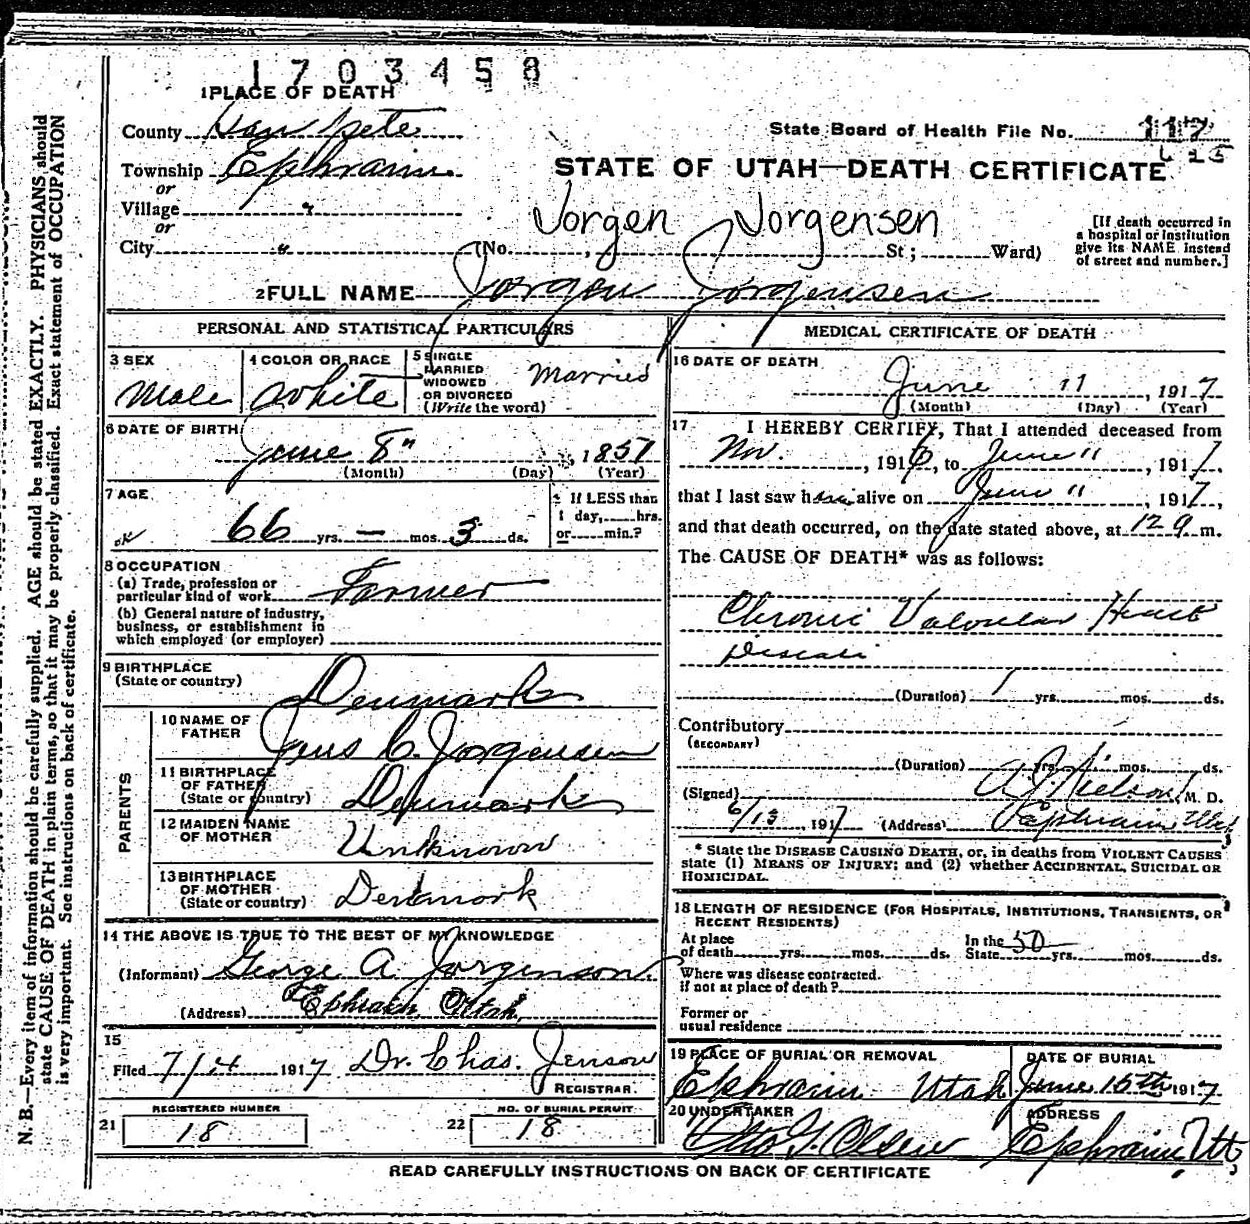 1703458
1 PLACE OF DEATH
County San Pete
State Board of Health File No. 117
Township Ephraim
STATE OF UTAH—DEATH CERTIFICATE
or
Village "
or
Jorgen Jorgensen
City " (No. , St; Ward)
[If death occurred in
a hospital or institution
give its NAME instead
of street and number.]
2 FULL NAME Jorgen Jorgensen
PERSONAL AND STATISTICAL PARTICULARS
3 SEX
Male
4 COLOR OR RACE
White
5 SINGLE
MARRIED
WIDOWED
OR DIVORCED
(Write the word)
Married
6 DATE OF BIRTH
June 8" , 1851
(Month) (Day) (Year)
7 AGE
66 yrs. — mos. 3 ds.
If LESS than
1 day, hrs.
or min.?
8 OCCUPATION
(a) Trade, profession or
particular kind of work Farmer
(b) General nature of industry,
business, or establishment in
which employed (or employer)
9 BIRTHPLACE
(State or country)
Denmark
PARENTS
10 NAME OF
FATHER
Jens C. Jorgensen
11 BIRTHPLACE
OF FATHER
(State or country) Denmark
12 MAIDEN NAME
OF MOTHER
Unknown
13 BIRTHPLACE
OF MOTHER
(State or country) Denmark
14 THE ABOVE IS TRUE TO THE BEST OF MY KNOWLEDGE
(Informant) George A. Jorgenson
(Address) Ephraim Utah
15
Filed 7/4 1917 Dr. Chas. Jenson
REGISTRAR
21 REGISTERED NUMBER
18
22 NO. OF BURIAL PERMIT
18
MEDICAL CERTIFICATE OF DEATH
16 DATE OF DEATH
June 11 , 1917
(Month) (Day) (Year)
17 I HEREBY CERTIFY, That I attended deceased from
Nov. , 1916, to June 11 , 1917.
that I last saw him alive on June 11 , 1917,
and that death occurred, on the date stated above, at 12 9 m.
The CAUSE OF DEATH* was as follows:
Chronic Valvular Heart
Disease
(Duration) 1 yrs. mos. ds.
Contributory
(SECONDARY)
(Duration) yrs. mos. ds.
(Signed) Nielson, M. D.
6/13 , 1917 (Address) Ephraim Utah
* State the DISEASE CAUSING DEATH, or, in deaths from VIOLENT CAUSES
state (1) MEANS OF INJURY; and (2) whether ACCIDENTAL, SUICIDAL OR
HOMICIDAL.
18 LENGTH OF RESIDENCE (FOR HOSPITALS, INSTITUTIONS, TRANSIENTS, OR
RECENT RESIDENTS)
At place
of death yrs. mos. ds.
In the
State 50 yrs. mos. ds.
Where was disease contracted.
if not at place of death?
Former or
usual residence
19 PLACE OF BURIAL OR REMOVAL
Ephraim Utah
DATE OF BURIAL
June 15th 1917
20 UNDERTAKER
Olsen
ADDRESS
Ephraim, Ut
READ CAREFULLY INSTRUCTIONS ON BACK OF CERTIFICATE
N. B.—Every item of information should be carefully supplied. AGE should be stated EXACTLY. PHYSICIANS should
state CAUSE OF DEATH in plain terms, so that it may be properly classified. Exact statement of OCCUPATION
is very important. See instructions on back of certificate.